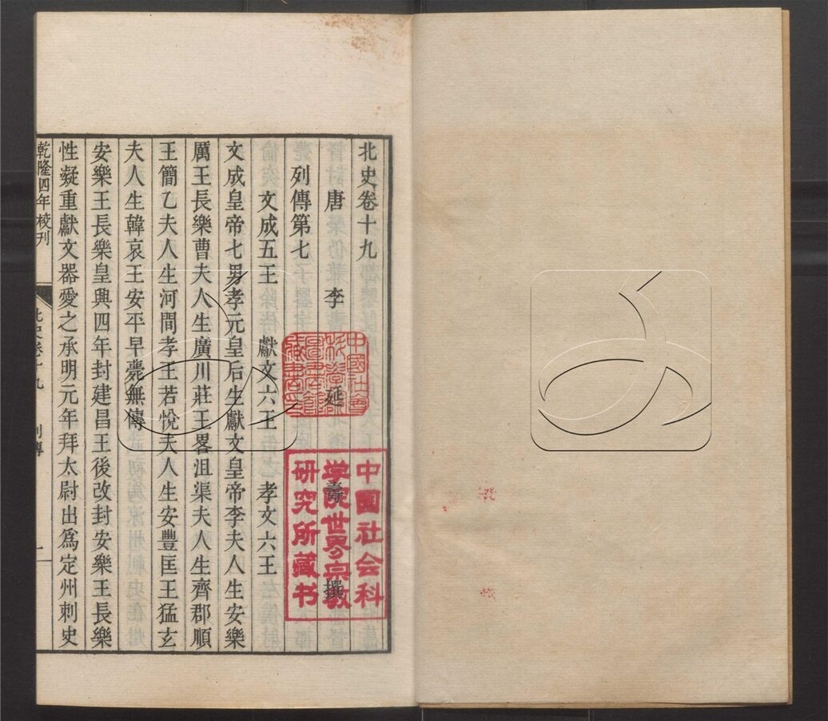 北史卷十九
唐 李 延 壽 撰
列傳第七
文成五王 獻文六王 孝文六王
文成皇帝七男孝元皇后生獻文皇帝李夫人生安樂
厲王長樂曹夫人生廣川莊王畧沮渠夫人生齊郡順
王簡乙夫人生河間孝王若悅夫人生安豐匡王猛玄
夫人生韓哀王安平早薨無傳
安樂王長樂皇興四年封建昌王後改封安樂王長樂
性凝重獻文器愛之承明元年拜太尉出爲定州刺史
乾隆四年校刊
北史卷十九 列傳
一
中國社会科
学院世界宗教
研究所藏书
中國社會